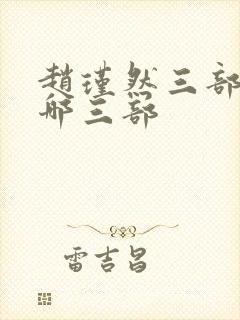 趙瑾然三部
哪三部
雷吉昌